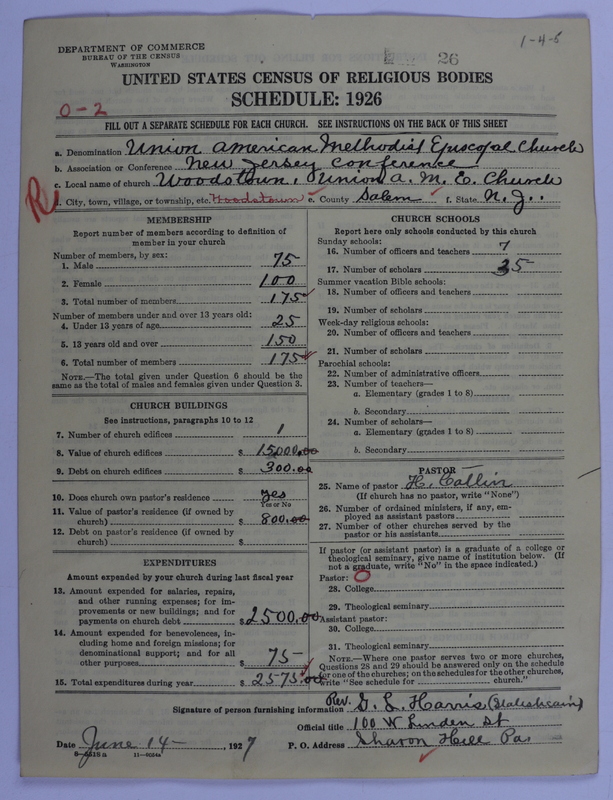 1-4-5
DEPARTMENT OF COMMERCE
BUREAU OF THE CENSUS
WASHINGTON
26
UNITED STATES CENSUS OF RELIGIOUS BODIES
SCHEDULE: 1926
0-2
FILL OUT A SEPARATE SCHEDULE FOR EACH CHURCH. SEE INSTRUCTIONS ON THE BACK OF THIS SHEET
a. Denomination Union American Methodist Episcopal Church
b. Association or Conference New Jersey Conference
c. Local name of church Woodstown, Union A. M. E. Church
d. City, town, village, or township, etc. Woodstown e. County Salem f. State N. J.
MEMBERSHIP
Report number of members according to definition of
member in your church
Number of members, by sex:
1. Male 75
2. Female 100
3. Total number of members 175
Number of members under and over 13 years old:
4. Under 13 years of age 25
5. 13 years old and over 150
6. Total number of members 175
NOTE.—The total given under Question 6 should be the
same as the total of males and females given under Question 3.
CHURCH BUILDINGS
See instructions, paragraphs 10 to 12
7. Number of church edifices 1
8. Value of church edifices $ 15000.00
9. Debt on church edifices $ 300.00
10. Does church own pastor's residence yes
Yes or No
11. Value of pastor's residence (if owned by
church) $ 800.00
12. Debt on pastor's residence (if owned by
church) $
EXPENDITURES
Amount expended by your church during last fiscal year
13. Amount expended for salaries, repairs,
and other running expenses; for im-
provements or new buildings; and for
payments on church debt $ 2500.00
14. Amount expended for benevolences, in-
cluding home and foreign missions; for
denominational support; and for all
other purposes $ 75
15. Total expenditures during year $ 2575.00
CHURCH SCHOOLS
Report here only schools conducted by this church
Sunday schools:
16. Number of officers and teachers 7
17. Number of scholars 35
Summer vacation Bible schools:
18. Number of officers and teachers
19. Number of scholars
Week-day religious schools:
20. Number of officers and teachers
21. Number of scholars
Parochial schools:
22. Number of administrative officers
23. Number of teachers—
a. Elementary (grades 1 to 8)
b. Secondary
24. Number of scholars—
a. Elementary (grades 1 to 8)
b. Secondary
PASTOR
25. Name of pastor H. Collin
(If church has no pastor, write "None")
26. Number of ordained ministers, if any, em-
ployed as assistant pastors
27. Number of other churches served by the
pastor or his assistants
If pastor (or assistant pastor) is a graduate of a college or
theological seminary, give name of institution below. (If
not a graduate, write "No" in the space indicated.)
Pastor: 0
28. College
29. Theological seminary
Assistant pastor:
30. College
31. Theological seminary
NOTE.—Where one pastor serves two or more churches,
Questions 28 and 29 should be answered only on the schedule
for one of the churches; on the schedules for the other churches,
write "See schedule for church."
Signature of person furnishing information Rev. G. L. Harris (Statistician)
Official title 100 W Linden St
Date June 14 , 1927 P. O. Address Sharon Hill Pa.
8-5518a 11-9084a